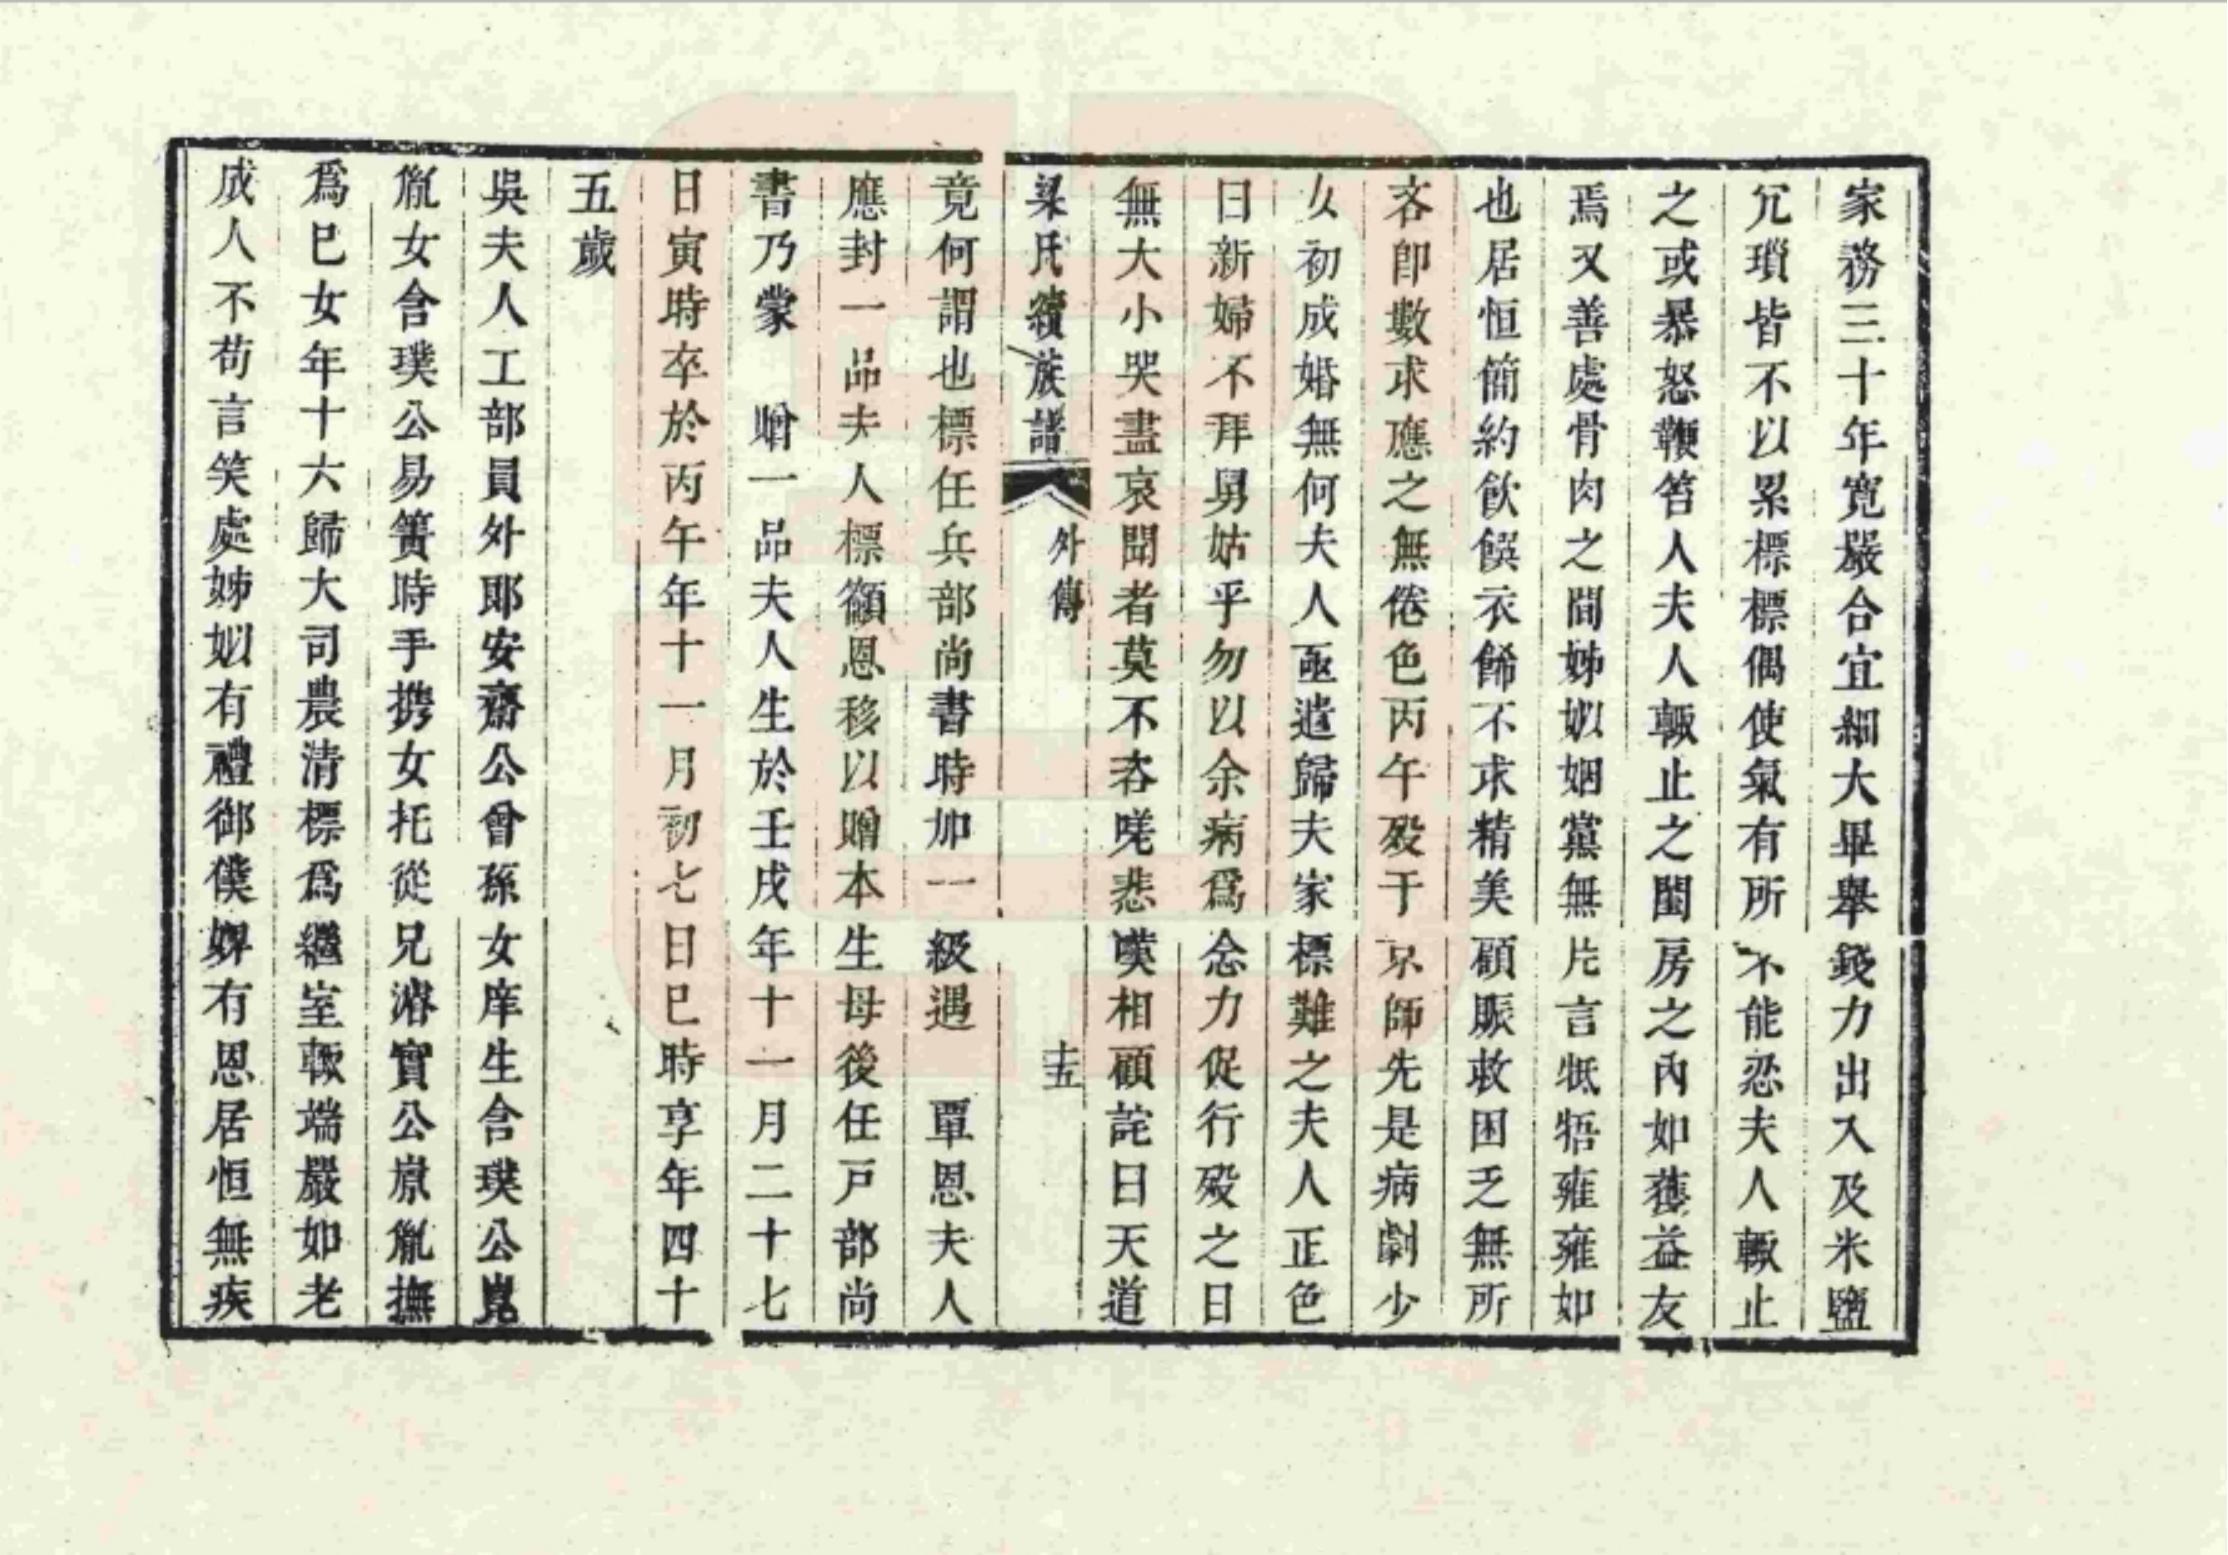 家務三十年寬嚴合宜細大畢舉錢力出入及米鹽
冗瑣皆不以累標標偶使氣有所不能忍夫人輙止
之或暴怒鞭笞人夫人輙止之閨房之內如獲益友
焉又善處骨肉之間姊姒姻黨無片言牴牾雍雍如
也居恒簡約飲饌衣餙不求精美顧賑救困乏無所
吝卽數求應之無倦色丙午歿于京師先是病劇少
女初成婚無何夫人亟遣歸夫家標難之夫人正色
曰新婦不拜舅姑乎勿以余病爲念力促行歿之日
無大小哭盡哀聞者莫不咨嗟悲嘆相顧詫曰天道
梁氏續族譜 外傳 十五
竟何謂也標任兵部尚書時加一級遇 覃恩夫人
應封一品夫人標籲恩移以贈本生母後任戸部尚
書乃蒙 贈一品夫人生於壬戌年十一月二十七
日寅時卒於丙午年十一月初七日巳時享年四十
五歲
吳夫人工部員外郎安齋公曾孫女庠生含璞公崑
胤女含璞公易簀時手携女托從兄濬實公原胤撫
爲巳女年十六歸大司農清標爲繼室輙端嚴如老
成人不苟言笑處姊姒有禮御僕婢有恩居恒無疾